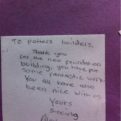 To potters builders.
Thank you
for the new foundation
building, you have put
some fantastic work
You all have also
been nice with us
Yours